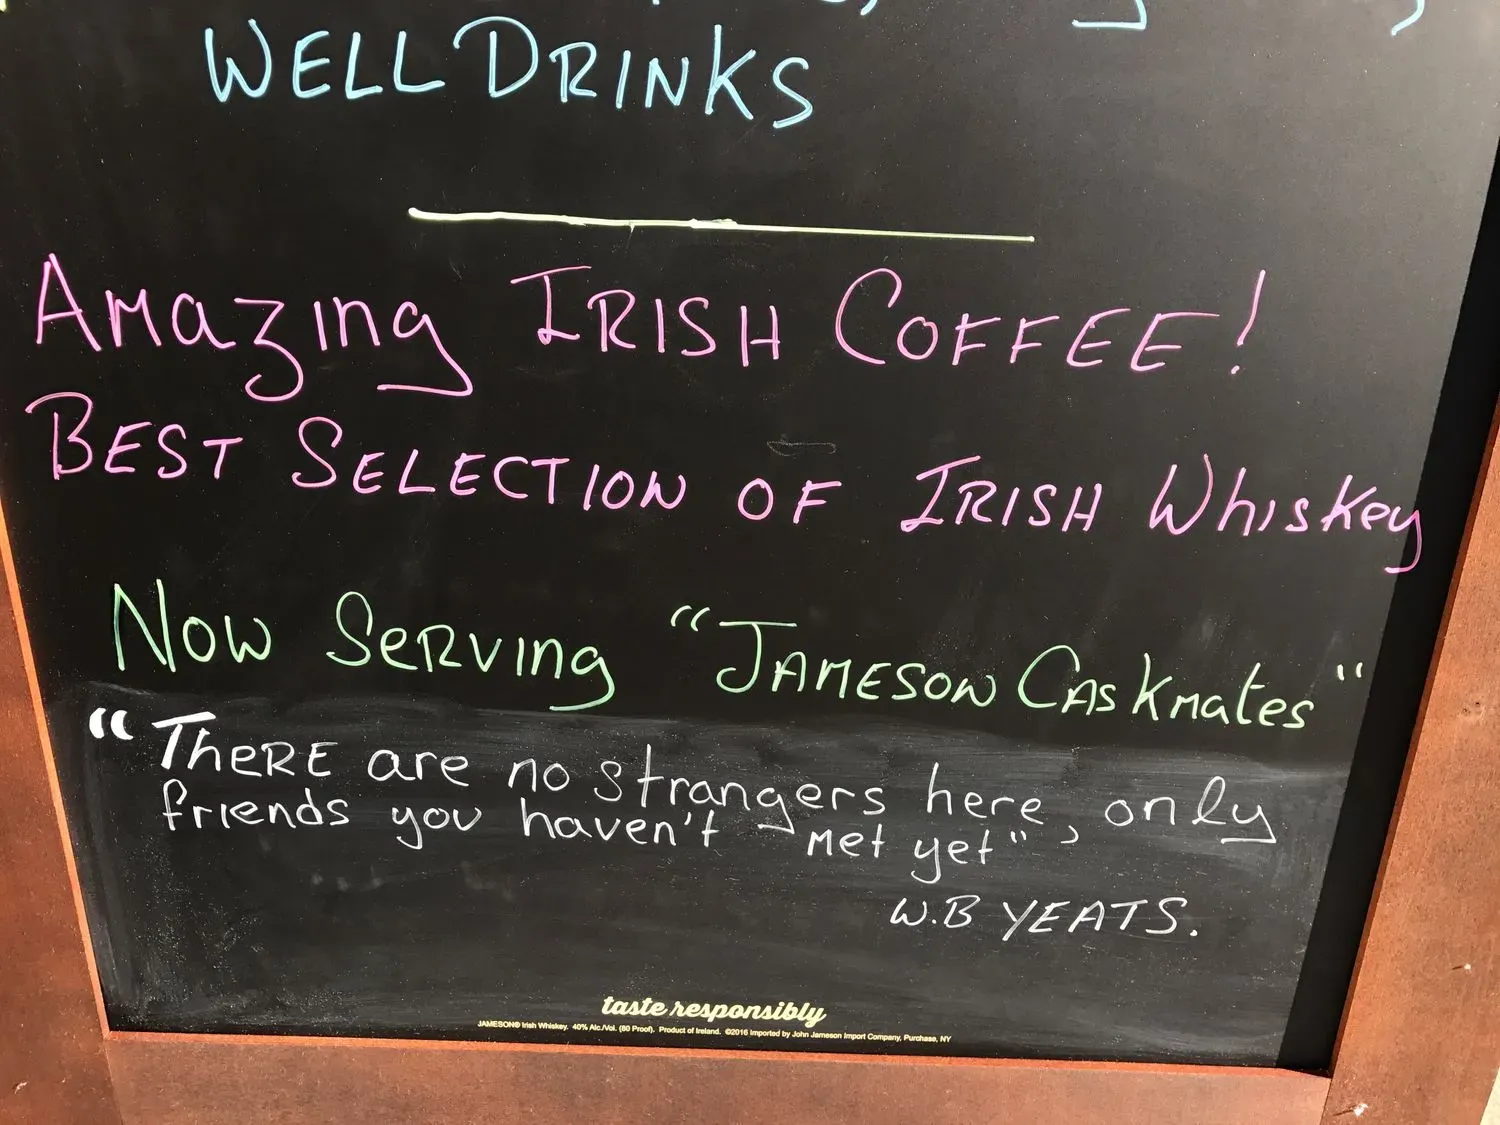 WELL DRINKS
Amazing IRISH COFFEE!
BEST SELECTION OF IRISH Whiskey
Now Serving "JAMESON CASKmates"
"There are no strangers here, only
friends you haven't met yet"
W.B YEATS.
taste responsibly
JAMESON® Irish Whiskey. 40% Alc./Vol. (80 Proof). Product of Ireland. ©2016 Imported by John Jameson Import Company, Purchase, NY